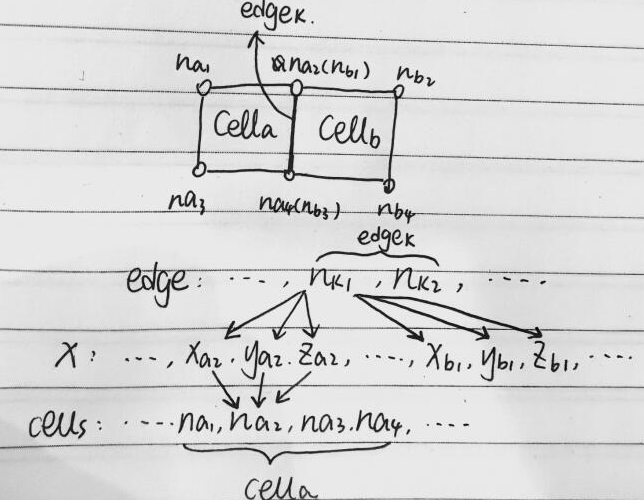 edgeK.
na1 na2(nb1) nb2
Cella Cellb
na3 na4(nb3) nb4
edgeK
edge: ...., nK1, nK2, ....
X: ...., xa2, ya2, za2, ...., xb1, yb1, zb1, ....
cells: ....na1, na2, na3, na4, ....
cella